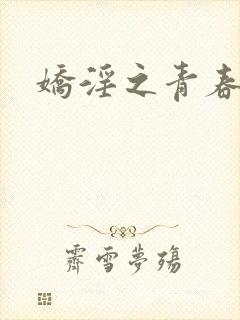 嬌淫之青春
霽雪夢殤